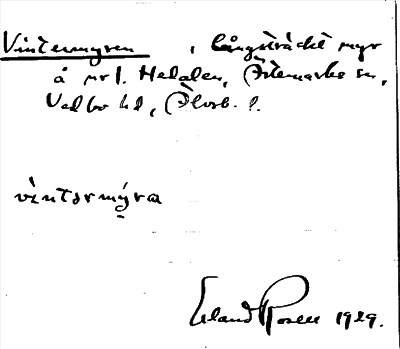 Vintermyren, långsträckt myr
å nr 1. Hedalen, Ärtemarks sn,
Vedbo hd, Älvsb. l.
vintərmýra
Erland Rosell 1929.